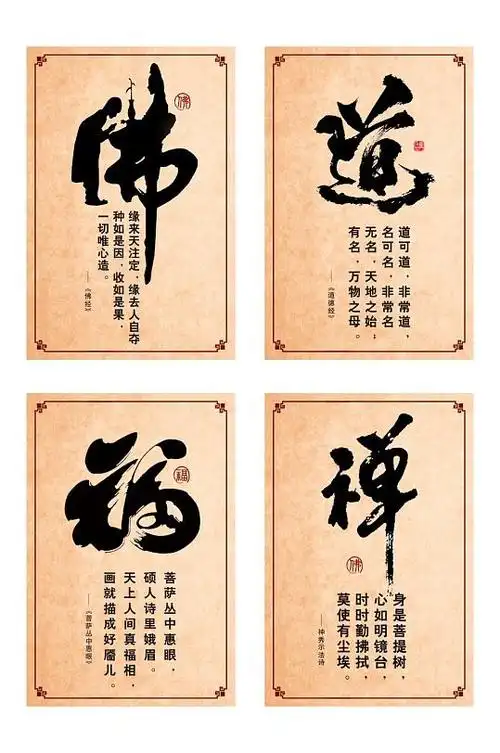 佛
佛
缘来天注定，缘去人自夺
种如是因，收如是果，
一切唯心造。
——《佛经》
道
道可道，非常道，
名可名，非常名
无名，天地之始；
有名，万物之母。
——《道德经》
福
福
菩萨丛中惠眼，
硕人诗里娥眉。
天上人间真福相，
画就描成好靥儿。
——《菩萨丛中惠眼》
禅
佛
身是菩提树，
心如明镜台，
时时勤拂拭，
莫使有尘埃。
——神秀示法诗